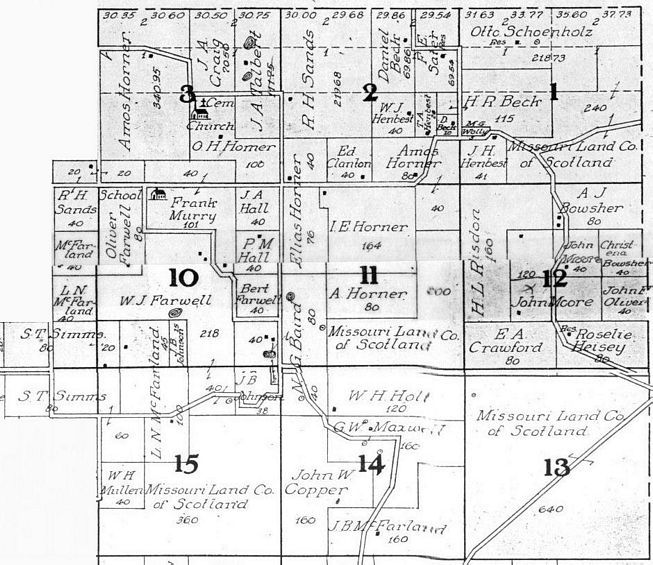 30.35 2 30.60 30.50 2 30.75 30.00 2 29.68 29.86 2 29.54 31.63 33.77 2 35.60 37.73
Otto Schoenholz
Res
218 73
Amos Horner
340.95
J A
Craig
70.46
J A Talbert
R H Sands
219 68
Daniel
Beck
69.86
F E
Sater
Res
69.54
3
2
1
Cem
Church
O H Horner
100
W J
Henbest
40
T A
Henbest
D.
Beck
H R Beck
115
240
M G
Wolly
Ed
Clanton
40
40
Amos
Horner
80
J H
Henbest
41
Missouri Land Co.
of Scotland
20
20
40
R H
Sands
40
School
Oliver
Farwell
80
Frank
Murry
101
J A
Hall
40
Elias Horner
76
I E Horner
164
40
H L Risdon
160
A J
Bowsher
80
McFar-
land
40
P M
Hall
40
John
Moore
40
Christ
ena
Bowsher
40
10
11
12
L N
McFar-
land
40
W J Farwell
218
Bert
Farwell
40
N G Baird
80
A Horner
80
200
120
John Moore
John F
Oliver
40
S T Simms
80
20
L N McFarland
160
J B
Johnson
45
40
Missouri Land Co.
of Scotland
E A
Crawford
80
Res
Roselie
Heisey
80
S T Simms
80
40
J B
Johnson
38
40
W H Holt
120
Missouri Land Co.
of Scotland
60
G W Maxwell
160
15
14
13
W H
Mullen
40
Missouri Land Co.
of Scotland
360
John W
Copper
160
640
J B McFarland
160